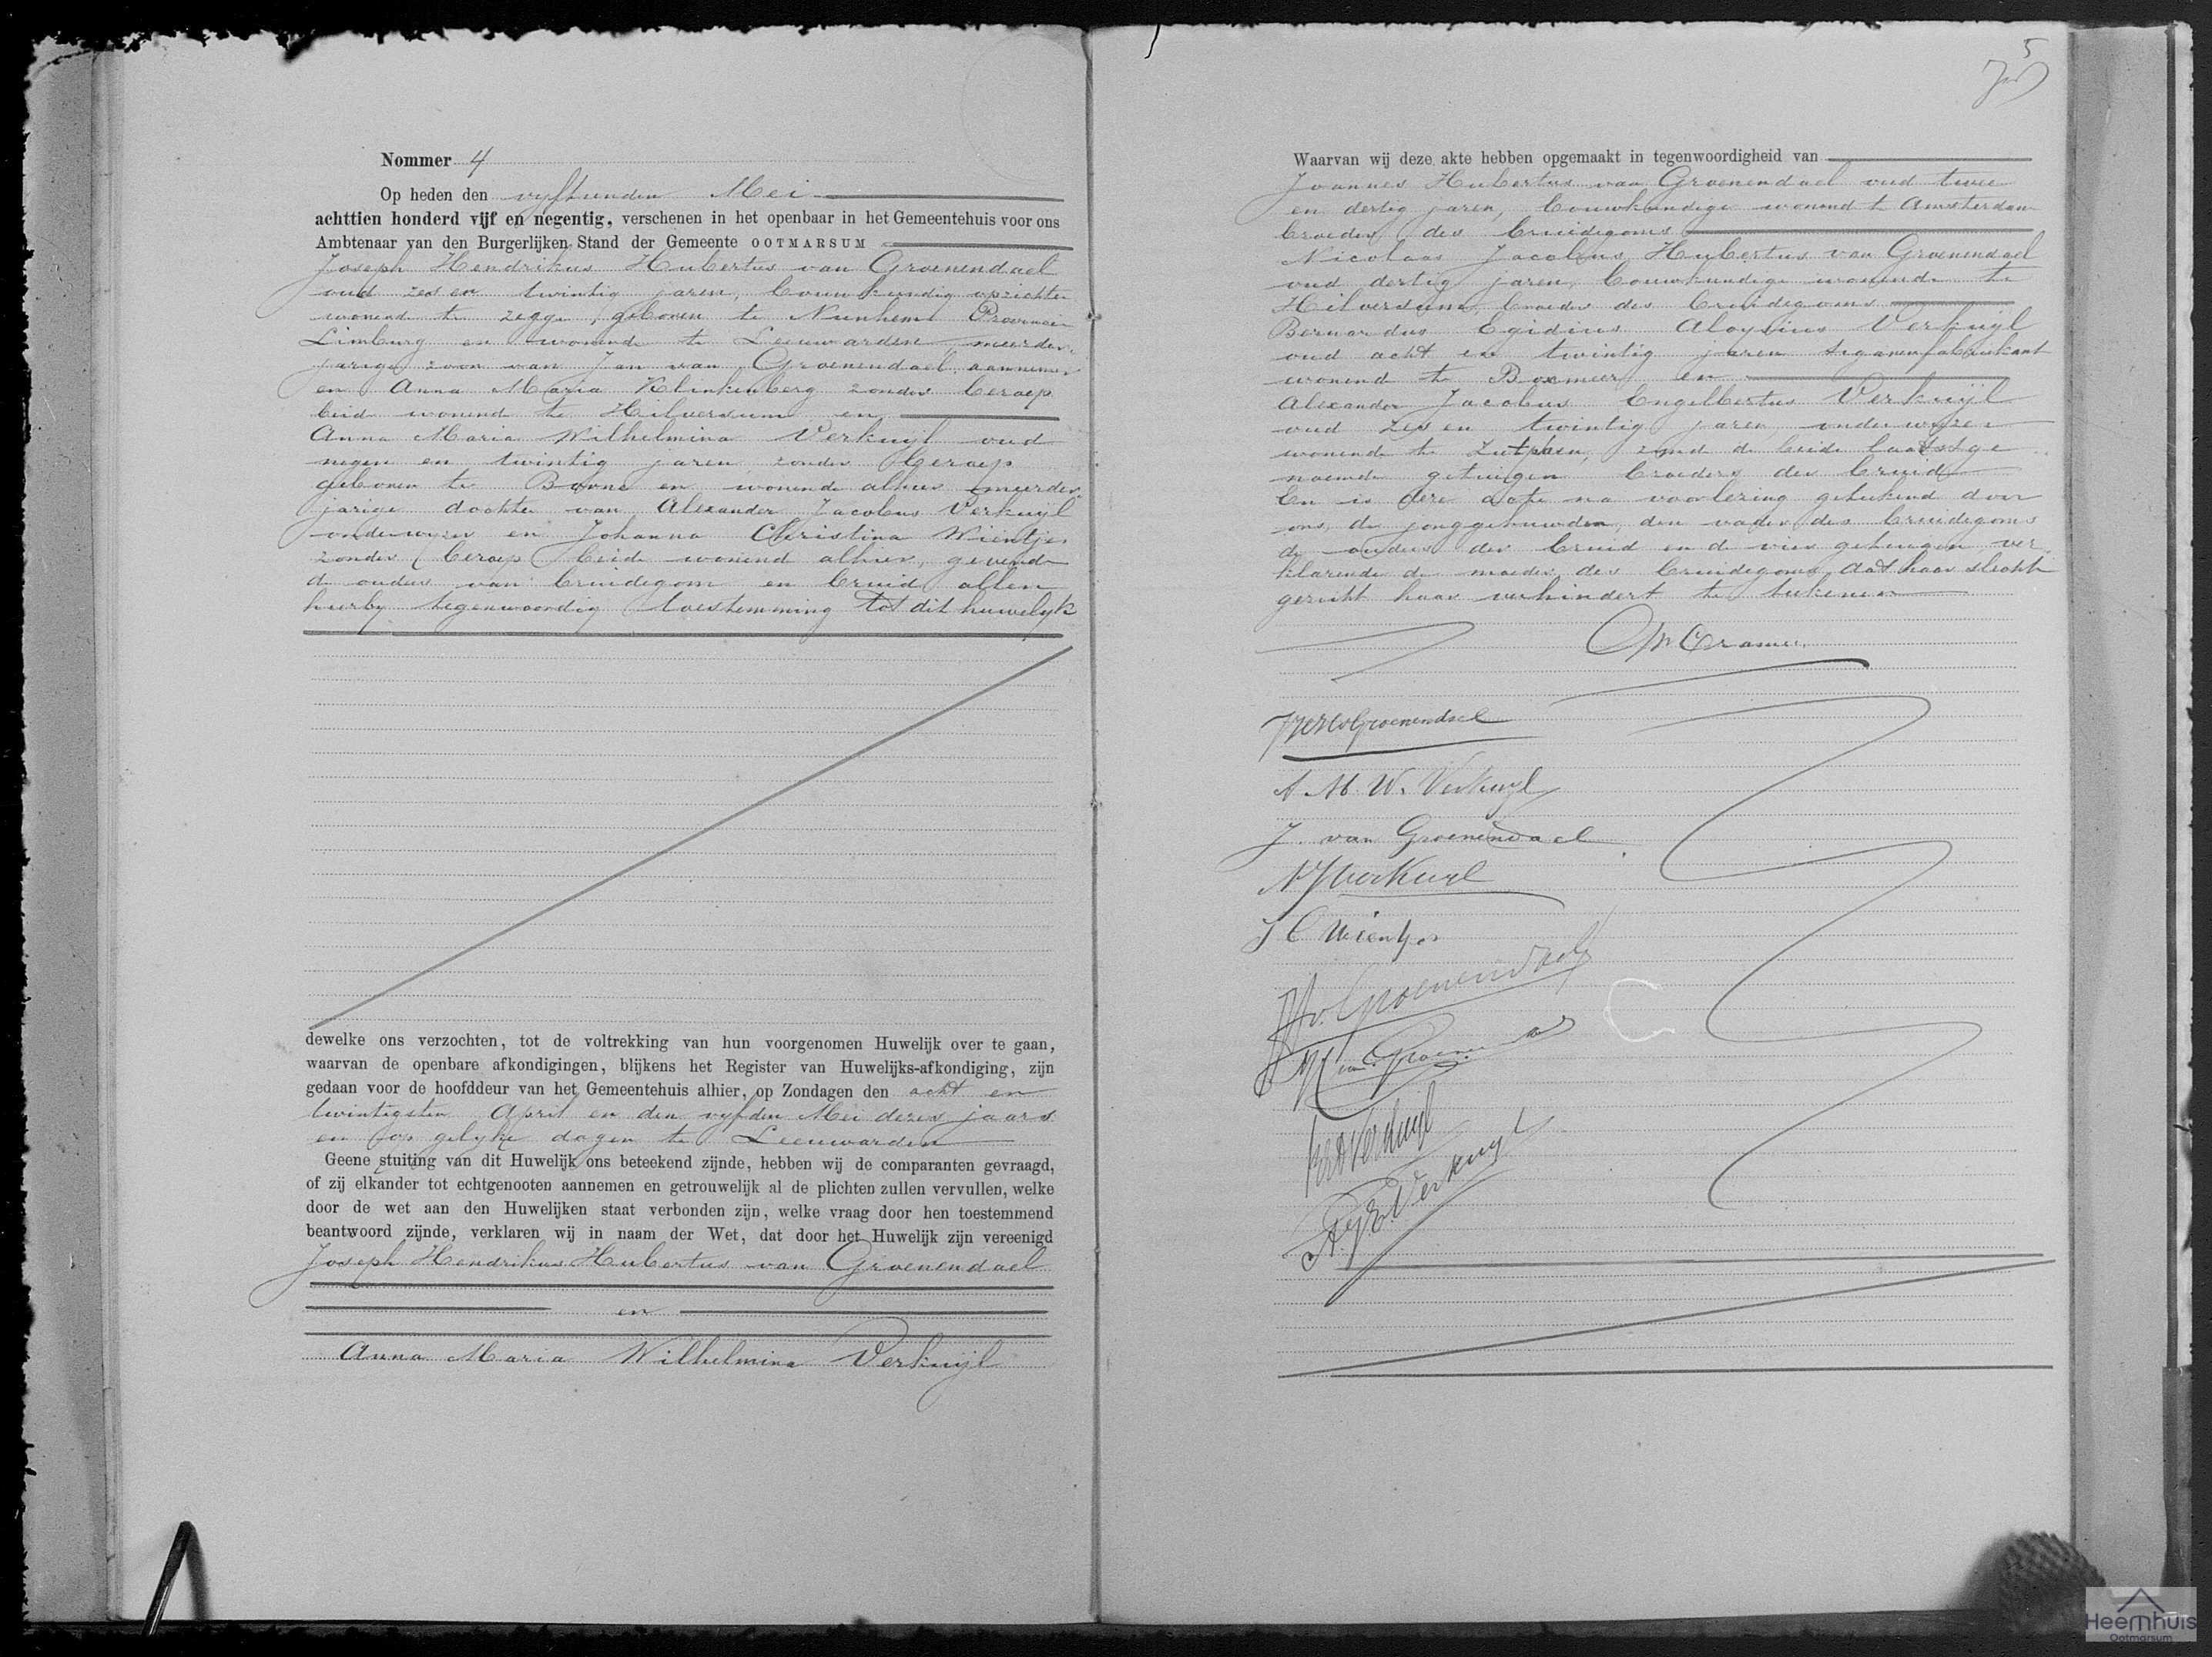 Nommer 4
Op heden den vyftienden Mei
achttien honderd vijf en negentig, verschenen in het openbaar in het Gemeentehuis voor ons
Ambtenaar van den Burgerlijken Stand der Gemeente OOTMARSUM
Joseph Hendrikus Hubertus van Groenendael
oud zes en twintig jaren, bouwkundig opzichter
wonend te Zegge, geboren te Nunhem Provincie
Limburg en wonende te Leeuwarden meerder
jarige zoon van Jan van Groenendael, aannemer
en Anna Maria Klinkenberg zonder beroep
beide wonend te Hilversum en
Anna Maria Wilhelmina Verkuijl oud
negen en twintig jaren zonder beroep
geboren te Borne en wonende alhier meerder
jarige dochter van Alexander Jacobus Verkuijl
onderwyzer en Johanna Christina Wientjes
zonder beroep beide wonend alhier, gevende
de ouders van bruidegom en bruid allen
hierby tegenwoordig toestemming tot dit huwelyk
dewelke ons verzochten, tot de voltrekking van hun voorgenomen Huwelijk over te gaan,
waarvan de openbare afkondigingen, blijkens het Register van Huwelijks-afkondiging, zijn
gedaan voor de hoofddeur van het Gemeentehuis alhier, op Zondagen den acht en
twintigsten April en den vyfden Mei dezes jaars
en op gelyke dagen te Leeuwarden
Geene stuiting van dit Huwelijk ons beteekend zijnde, hebben wij de comparanten gevraagd,
of zij elkander tot echtgenooten aannemen en getrouwelijk al de plichten zullen vervullen, welke
door de wet aan den Huwelijken staat verbonden zijn, welke vraag door hen toestemmend
beantwoord zijnde, verklaren wij in naam der Wet, dat door het Huwelijk zijn vereenigd
Joseph Hendrikus Hubertus van Groenendael
en
Anna Maria Wilhelmina Verkuijl
5
Waarvan wij deze akte hebben opgemaakt in tegenwoordigheid van
Joannes Hubertus van Groenendael oud twee
en dertig jaren, bouwkundige wonend te Amsterdam
broeder des bruidegoms
Nicolaas Jacobus Hubertus van Groenendael
oud dertig jaren, bouwkundige wonende te
Hilversum, broeder des bruidegoms
Bernardus Egidius Aloysius Verkuijl
oud acht en twintig jaren sigarenfabrikant
wonend te Boxmeer en
Alexander Jacobus Engelbertus Verkuijl
oud zes en twintig jaren, onderwyzer
wonende te Zutphen, zynde de beide laatstge
noemde getuigen broeders der bruid
En is deze acte na voorlezing geteekend door
ons, de jonggehuwden, den vader des bruidegoms
de ouders der bruid en de vier getuigen ver
klarende de moeder des bruidegoms dat haar slecht
gezicht haar verhindert te teekenen
Cramer
JHH v Groenendael
A. M. W. Verkuyl
J. van Groenendael
AJ Verkuyl
J C Wientjes
JH v. Groenendael
NJH van Groenendael
BEA Verkuijl
A. J. E. Verkuyl
Heemhuis
Ootmarsum